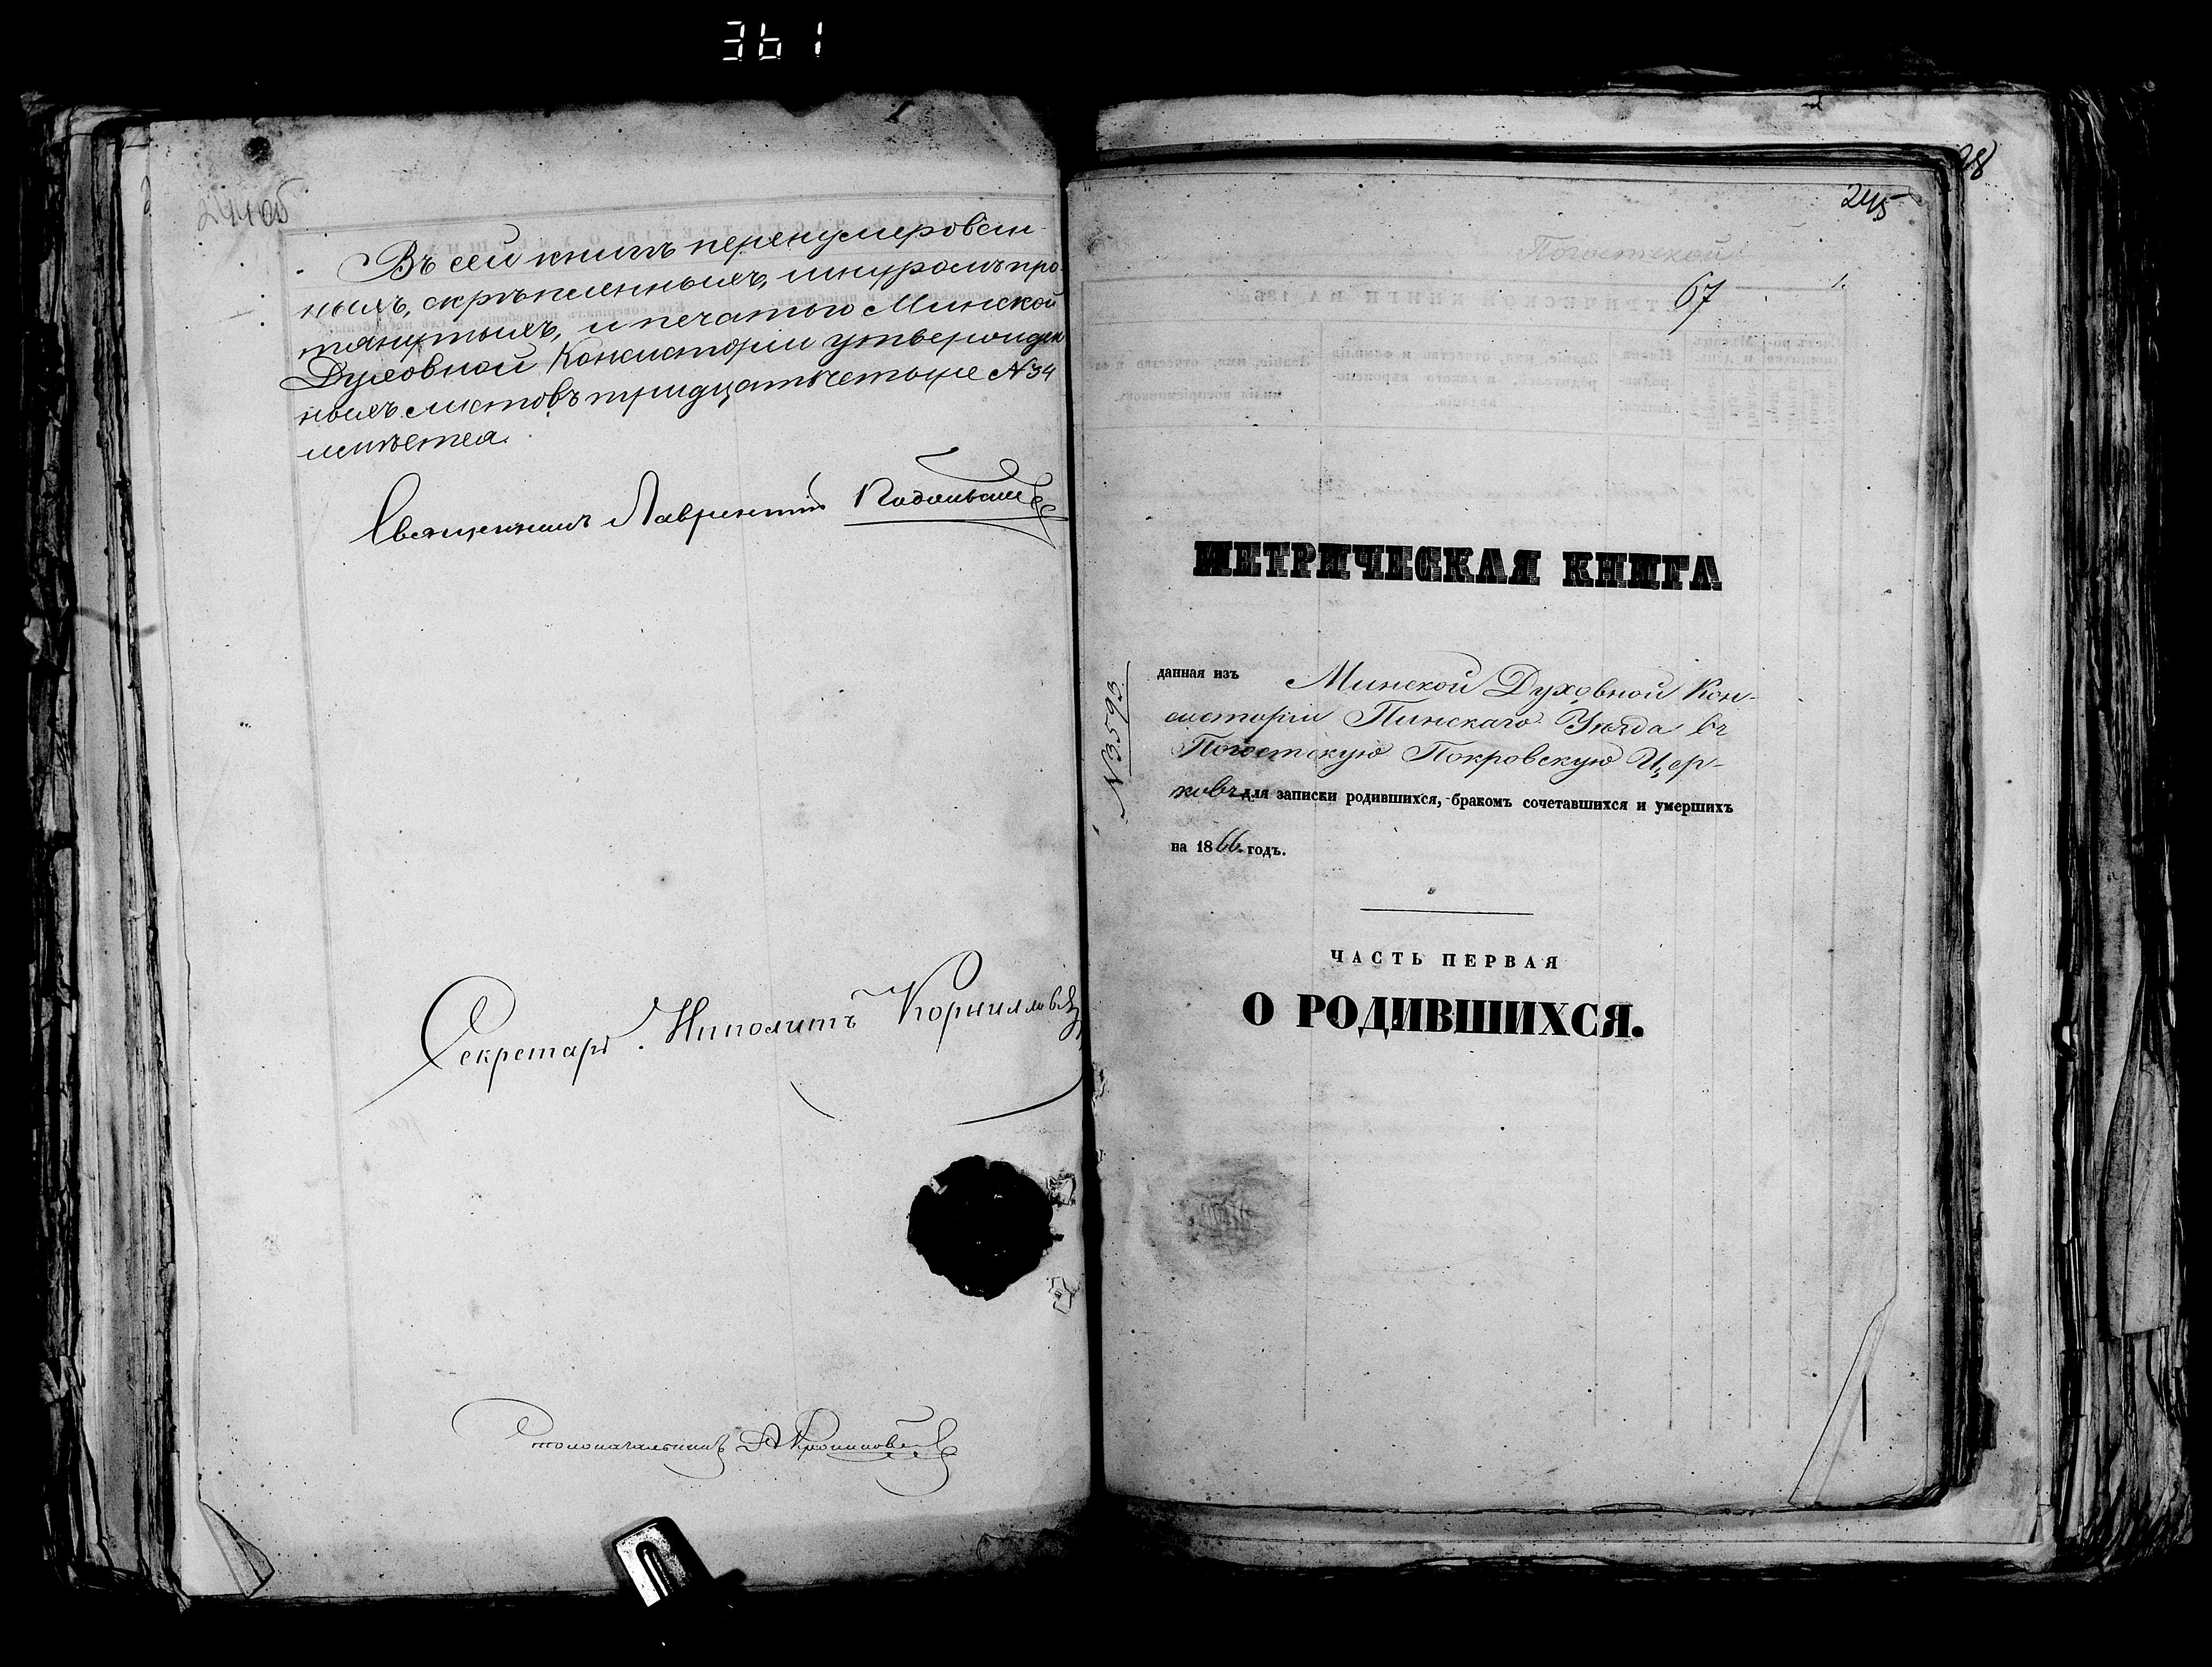 361
244об
Въ сей книгѣ перенумерован-
ныхъ, скрѣпленныхъ, шнуромъ про-
тянутыхъ, и печатью Минской
Духовной Консисторіи утвержден
ныхъ листовъ тридцать четыре №34
имѣется.
Священникъ Лаврентій
Секретарь Ипполитъ
Столоначальникъ
28
245
Погостской
67
1.
МЕТРИЧЕСКАЯ КНИГА
№3593
данная изъ Минской Духовной Кон-
систоріи Пинскаго Уѣзда въ
Погостскую Покровскую Цер-
ковь для записки родившихся, бракомъ сочетавшихся и умершихъ
на 1866 годъ.
ЧАСТЬ ПЕРВАЯ
О РОДИВШИХСЯ.